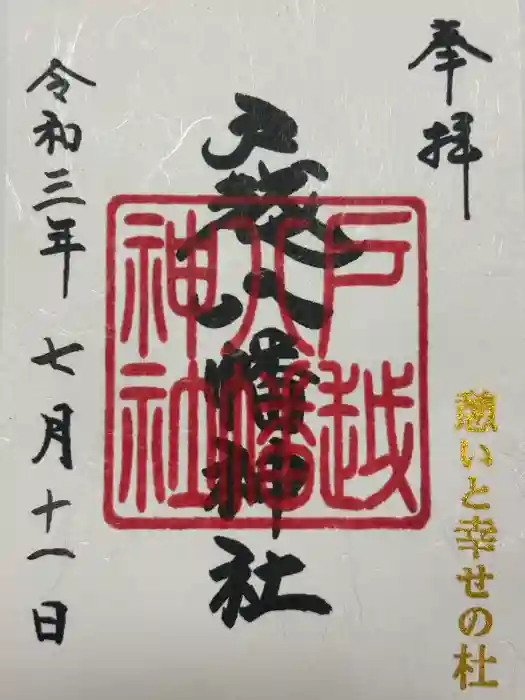 奉拝
憩いと幸せの杜
戸越八幡神社
戸越
八幡
神社
令和三年 七月十一日